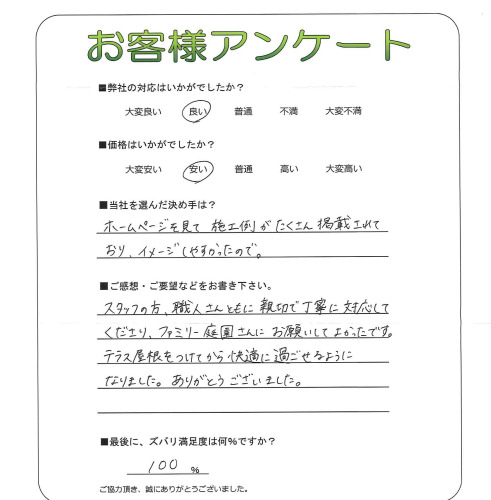 お客様アンケート
■弊社の対応はいかがでしたか？
大変良い 良い 普通 不満 大変不満
■価格はいかがでしたか？
大変安い 安い 普通 高い 大変高い
■当社を選んだ決め手は？
ホームページを見て 施工例が たくさん 掲載されて
おり、イメージしやすかったので。
■ご感想・ご要望などをお書き下さい。
スタッフの方、職人さんともに 親切で丁寧に 対応して
くださり、ファミリー庭園さんに お願いして よかったです。
テラス屋根をつけてから 快適に 過ごせるように
なりました。ありがとうございました。
■最後に、ズバリ満足度は何%ですか？
100 %
ご協力頂き、誠にありがとうございました。